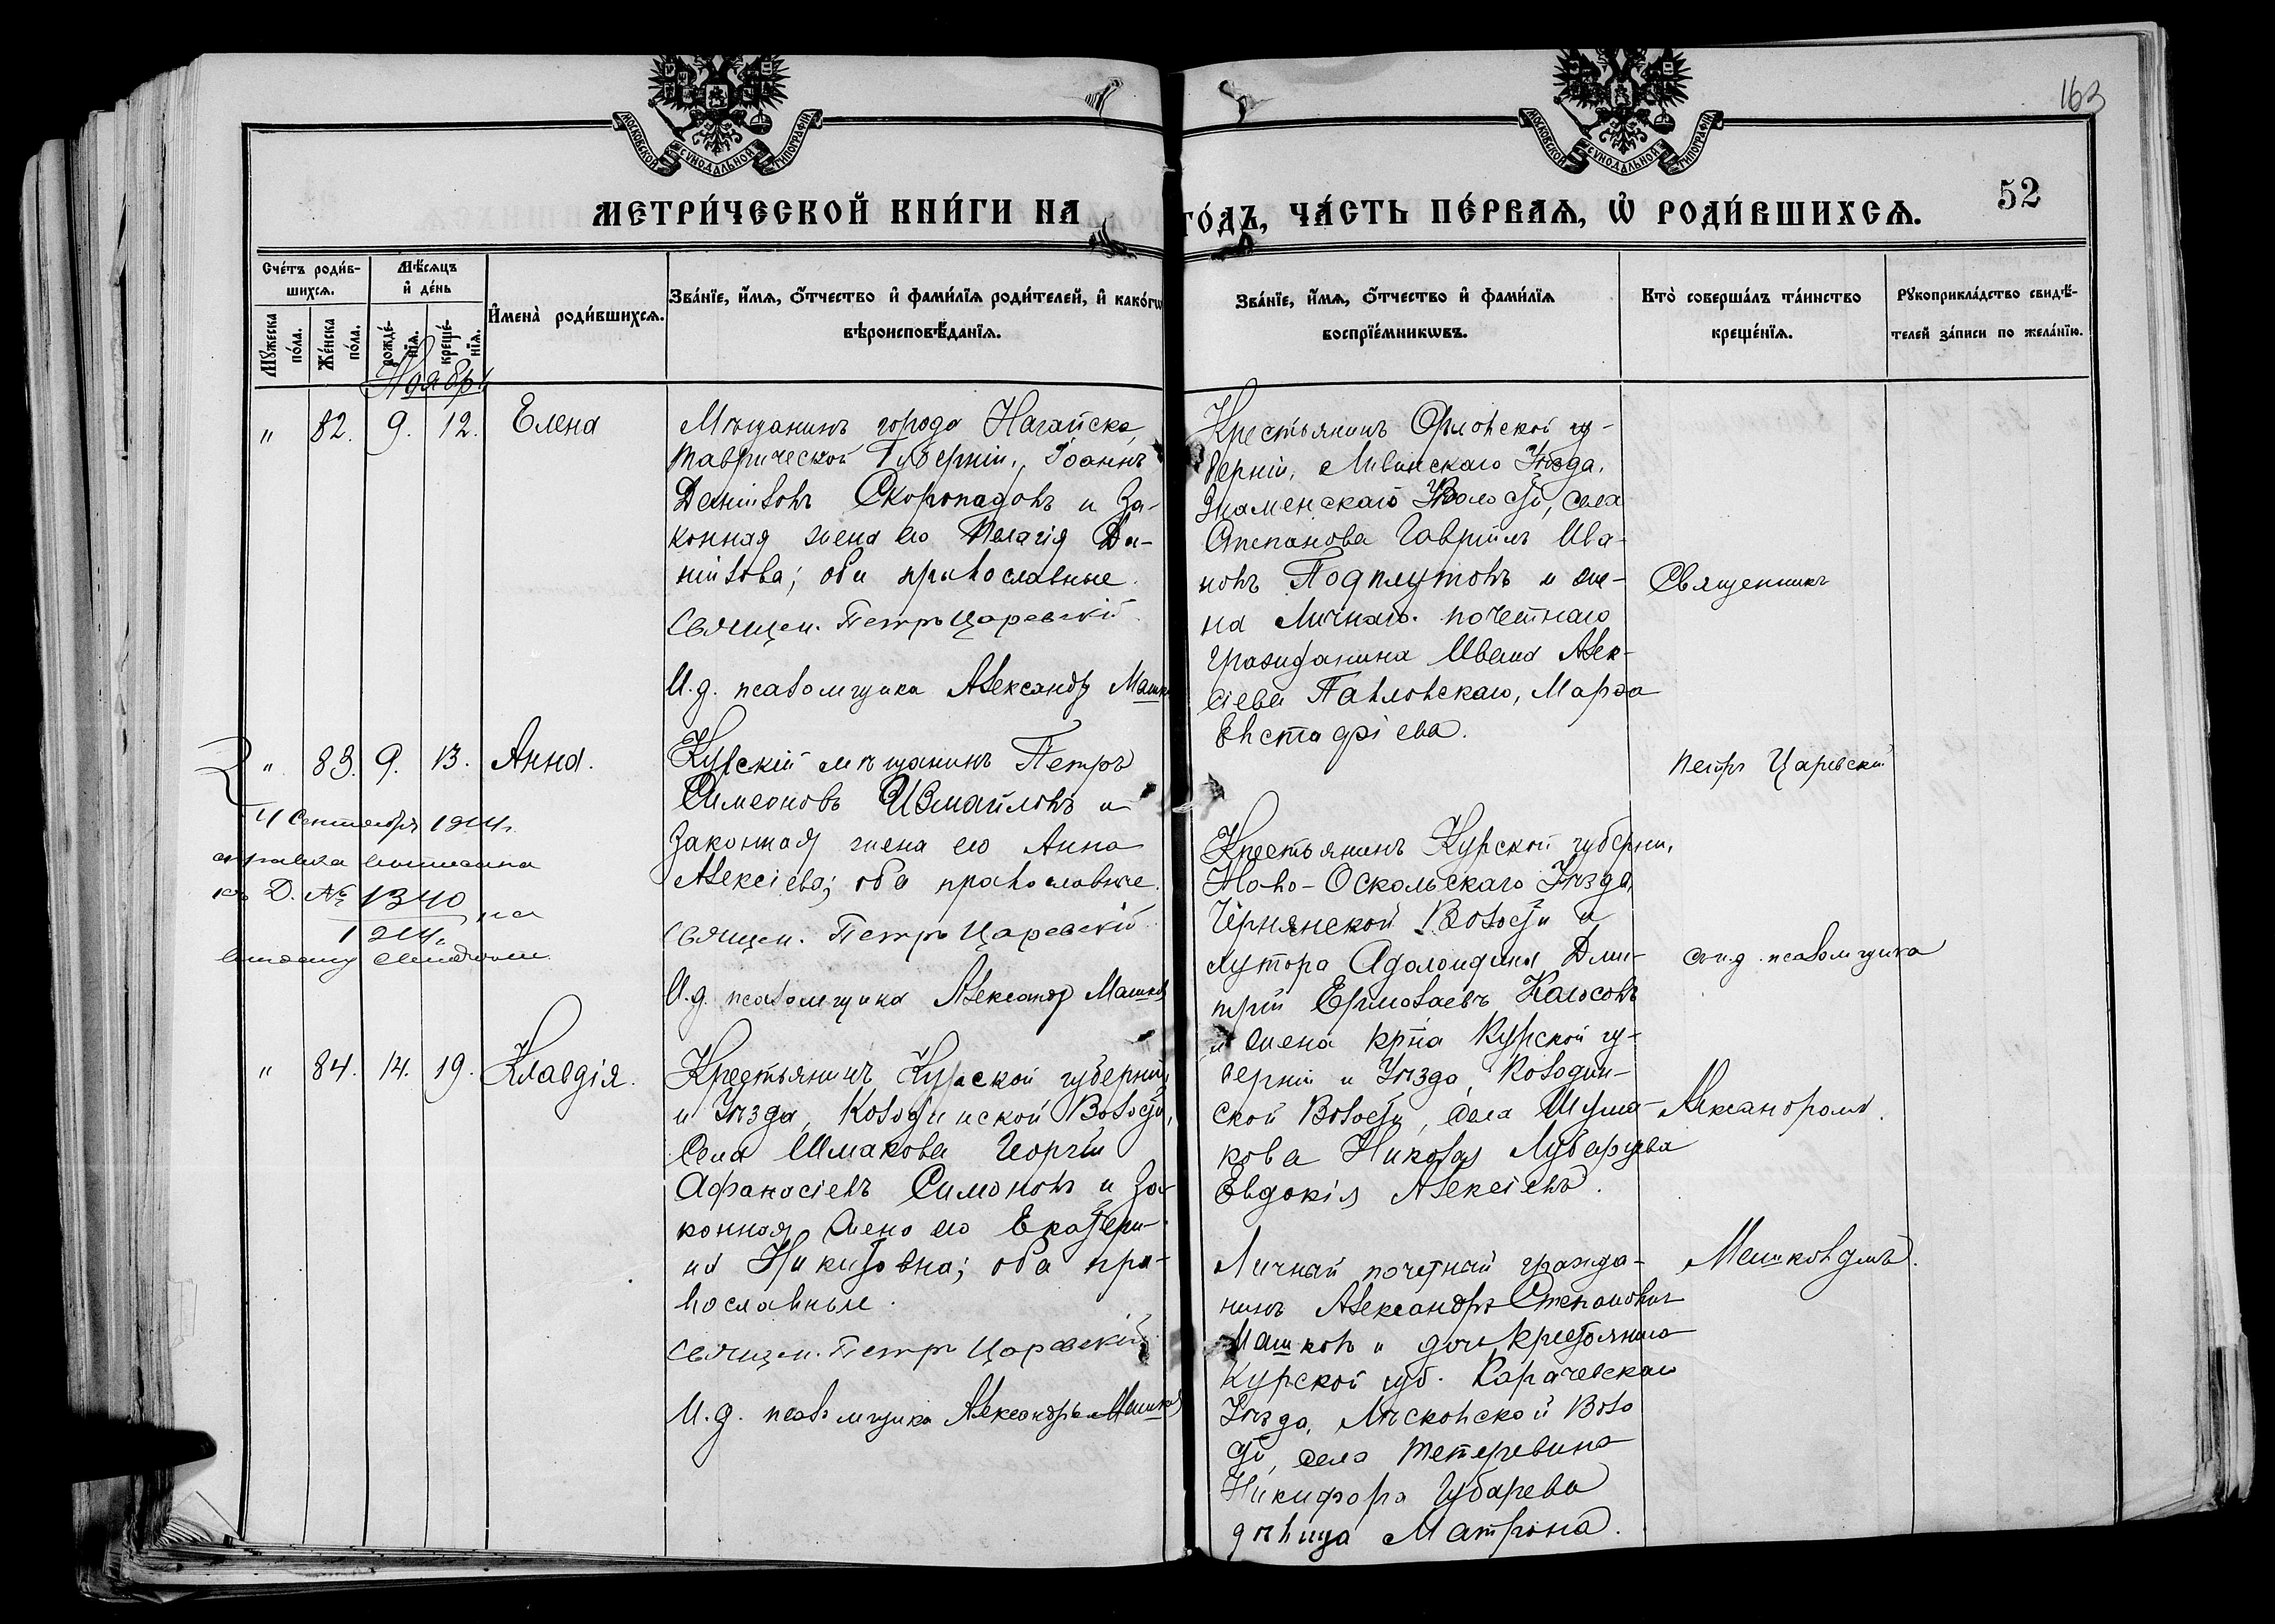 163
МОСКОВСКОЙ СУНОДАЛЬНОЙ ТИПОГРАФІИ
МОСКОВСКОЙ СУНОДАЛЬНОЙ ТИПОГРАФІИ
МЕТРИ́ЧЕСКОЙ КНИ́ГИ НА
ГО́ДЪ, ЧА́СТЬ ПЕ́РВАѦ, Ѡ҆ РОДИ́ВШИХСѦ.
52
Сче́тъ роди́в-
шихсѧ.
Мѣ́сѧцъ
и҆ де́нь
Мꙋ́жеска
по́ла.
Же́нска
по́ла.
рожде́-
нїѧ.
креще́-
нїѧ.
И҆мена̀ роди́вшихсѧ.
Зва́нїе, и҆́мѧ, ѻ҆́тчество и҆ фами́лїѧ роди́телей, и҆ како́гѡ
вѣроисповѣ́данїѧ.
Зва́нїе, и҆́мѧ, ѻ҆́тчество и҆ фами́лїѧ
воспрїе́мникѡвъ.
Кто̀ соверша́лъ та́инство
креще́нїѧ.
Рꙋкоприкла́дство свидѣ́-
телей за́писи по жела́нїю.
Ноябрь
" 82. 9. 12. Елена
Мѣщанинъ города Нагайска,
Таврической Губерніи, Іоаннъ
Даніиловъ Скоропадовъ и за-
конная жена его Пелагія Да-
ніилова; оба православные.
Священ. Петръ Царевскій.
И. д. псаломщика Александръ Машк
Крестьянинъ Орловской гу-
берніи, Ливенскаго Уѣзда,
Знаменской Волости, села
Степанова Гавріилъ Ива-
новъ Подплутовъ и же-
на Личнаго почетнаго
гражданина Ивана Алек-
сіева Павловскаго, Марѳа
Евстафіева.
Священникъ
" 83. 9. 13. Анна.
Курскій мѣщанинъ Петръ
Симеоновъ Измайловъ и
законная жена его Анна
Алексіева; оба православные.
Священ. Петръ Царевскій
И. д. псаломщика Александр Машков
4 Сентября 1914 г.
справка выписана
къ Д. № 1340
1914 на
выдачу
Крестьянинъ Курской губерніи,
Ново-Оскольскаго Уѣзда,
Чернянской Волости и
хутора Дми-
трій Ермолаевъ
и жена кр-на Курской гу-
берніи и Уѣзда,
ской Волости, села Шума-
кова Николая Лубарцева
Евдокія Алексіева.
Петръ Царевскій
съ и. д. псаломщика
" 84. 14. 19. Клавдія.
Крестьянинъ Курской губерніи
и Уѣзда, Колодинской Волости,
села Шмакова Георгій
Афанасіевъ Симоновъ и за-
конная жена его Екатери-
на Никитовна; оба пра-
вославные.
Священ. Петръ Царевскій
И. д. псаломщика Александръ Машков
Личный почетный гражда-
нинъ Александръ Степановичъ
Машковъ и дочь крестьянина
Курской губ. Карачевскаго
Уѣзда, Воло
сти, села Тетеревина
Никифора Губарева
дѣвица Матрона.
Александромъ
Машковымъ.